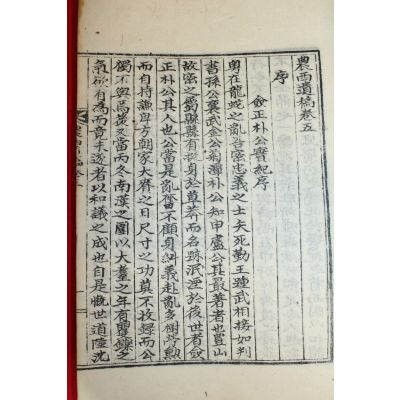 農西遺稿卷五
序
僉正朴公實紀序
粤在龍蛇之亂吾密忠義之士夫死勤王踵武相接如判
書孫公襄武金公菊潭朴公知申盧公其最著者也豊山
故密之蜀縣縣有挺身於草莽而名跡泯湮於後世者僉
正朴公其人也公當是亂奮不顧身糾義赴亂多樹勞勲
而自持謙卑方朝家大賚之日尺寸之功莫不收録而公
獨不與焉黃又當丙冬南漢之圍以大耋之年有矍鑠之
氣欲有為而竟未遂者以和議之成也自是慨世道陸沈